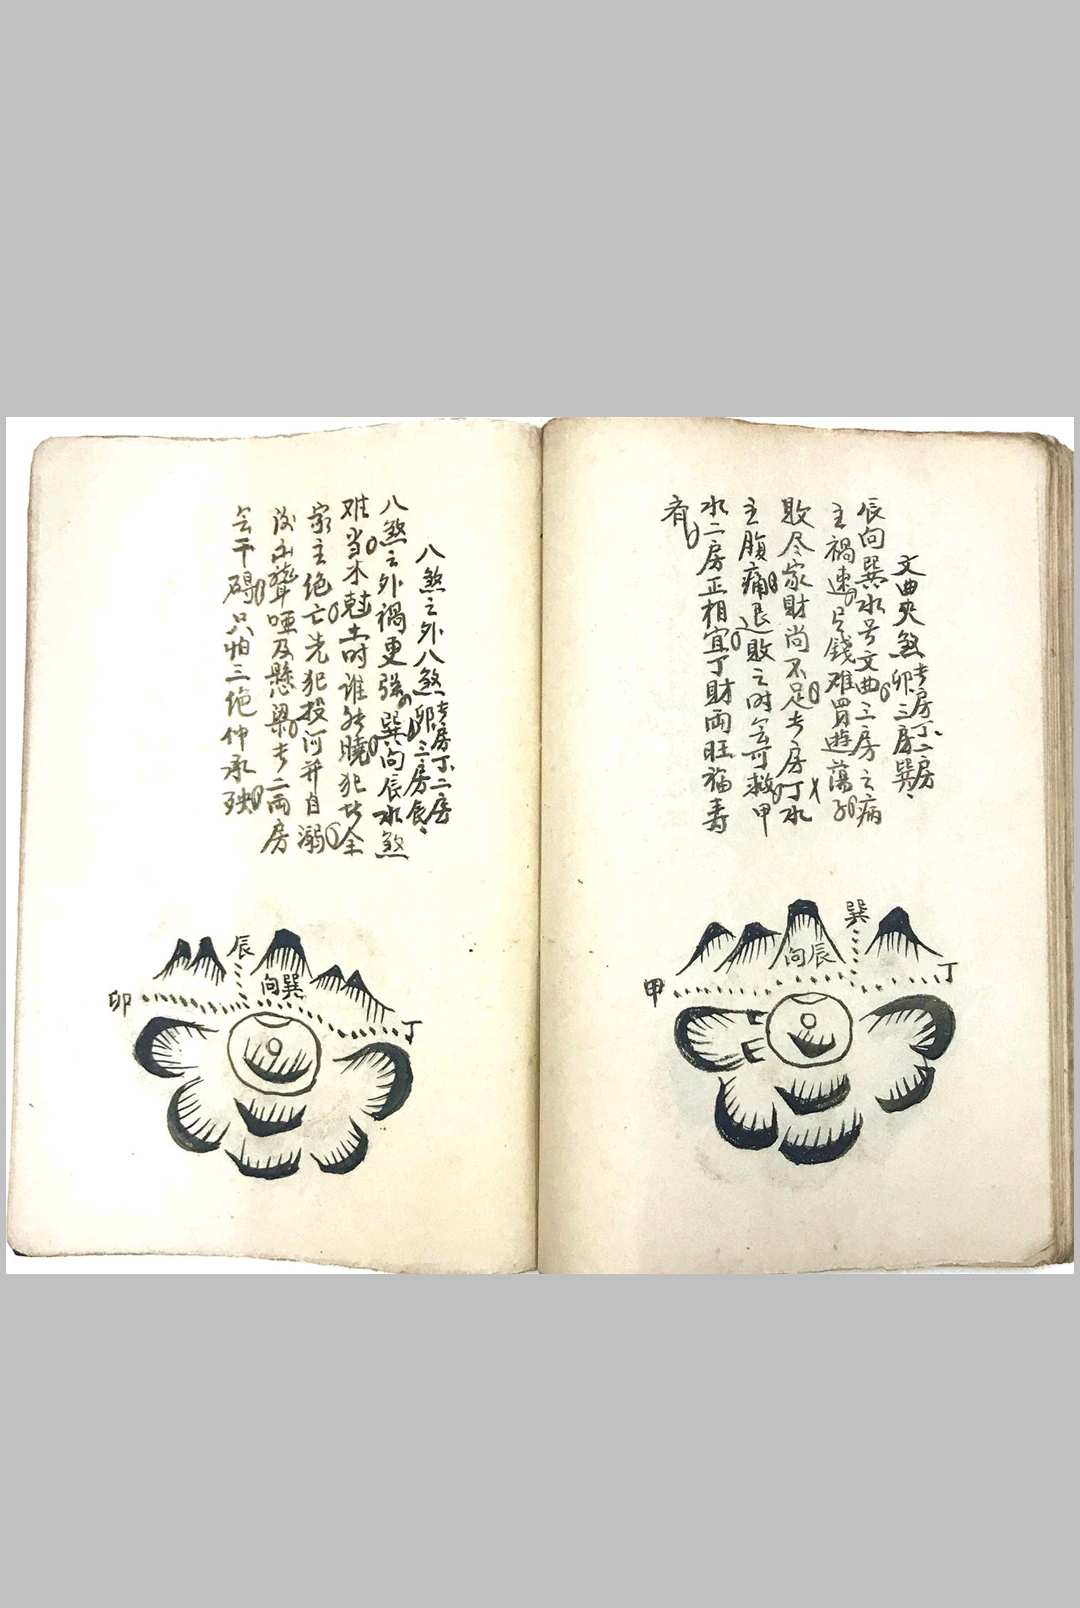 文曲夾煞 长房丁、二房
卯三房巽、
辰向巽水号文曲三房之病
主禍速只錢难買遊蕩子
敗尽家財尚不足长房丁水
主腹痛退敗之时会可救甲
水二房正相宜丁財両旺福寿
有
八煞之外八煞 长房丁、二房
卯三房辰、
八煞之外禍更强巽向辰水煞
难当木尅土时谁能曉犯此全
家主绝亡先犯投河并自溺
后出聾啞及懸梁长二両房
会干碍只怕三绝仲承殃
巽
向辰
甲
丁
辰
向巽
卯
丁